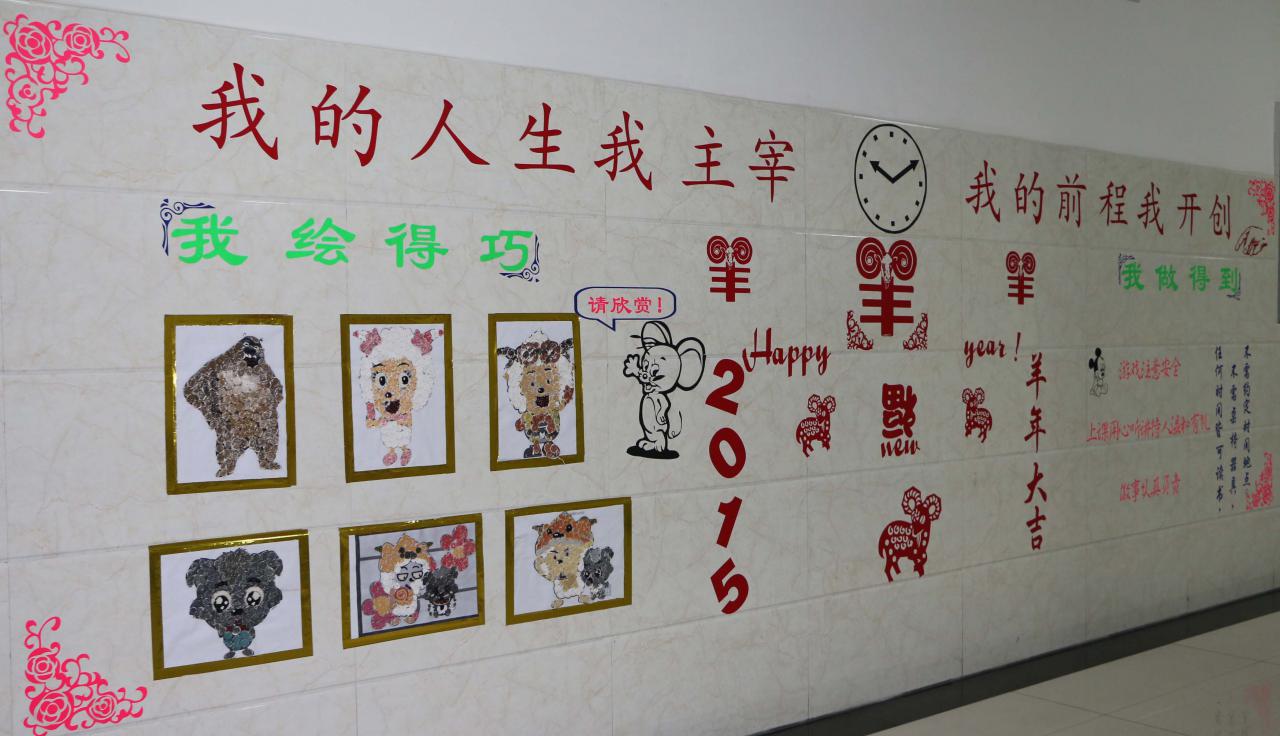 我的人生我主宰
我的前程我开创
我绘得巧
我做得到
请欣赏！
羊
羊
羊
Happy
new
year !
2015
羊年大吉
游戏注意安全
上课用心听讲待人温和有礼
做事认真负责
不需约定时间地点，
不需桌椅器具，
任何时间皆可读书，